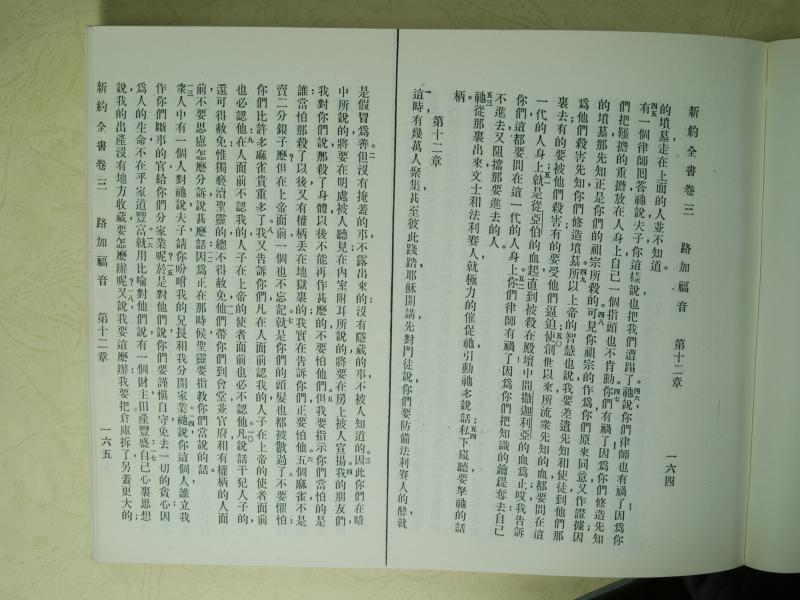 新約全書卷三 路加福音 第十二章 一六四
的墳墓走在上面的人並不知道。
四五有一個律師回答祂說夫子你這樣說也把我們遭蹋了。四六祂說你們律師也有禍了因爲你
們把難擔的重擔放在人身上自己一個指頭也不肯動。四七你們有禍了因爲你們修造先知
的墳墓那先知正是你們的祖宗所殺的。四八可見你祖宗的作爲你們原來同意又作證據因
爲他們殺害先知你們修造墳墓。四九所以上帝的智慧也說我要差遣先知和使徒到他們那
裏去有的要被他們殺害有的要受他們逼迫。五〇使創世以來所流衆先知的血都要問在這
一代的人身上。五一就是從亞伯的血起直到被殺在殿壇中間撒迦利亞的血爲止哎我告訴
你們這都要問在這一代的人身上。五二你們律師有禍了因爲你們把知識的鑰鍉奪去自己
不進去又阻擋那要進去的人。
五三祂從那裏出來文士和法利賽人就極力的催促祂引動祂多說話。五四私下窺聽要拏祂的話
柄。
第十二章
一這時有幾萬人聚集甚至彼此踐踏耶穌開講先對門徒說你們要防備法利賽人的酵就
是假冒爲善。二但沒有掩蓋的事不露出來的沒有隱藏的事不被人知道的。三因此你們在暗
中所說的將要在明處被人聽見在內室附耳所說的將要在房上被人宣揚。四我的朋友們
我對你們說那殺了身體以後不能再作甚麼的不要怕他們。五但我要指示你們當怕的是
誰當怕那殺了以後又有權柄丟在地獄裏的我實在告訴你們正要怕他。六五個麻雀不是
賣二分銀子麼但在上帝面前一個也不忘記。七就是你們的頭髮也都被數過了不要懼怕
你們比許多麻雀貴重多了。八我又告訴你們凡在人面前認我的人子在上帝的使者面前
也必認他。九在人面前不認我的人子在上帝的使者面前也必不認他。一〇凡說話干犯人子的
還可得赦免惟獨褻瀆聖靈的總不得赦免。一一他們帶你們到會堂並官府和有權柄的人面
前不要思慮怎麼分訴說甚麼話。一二因爲正在那時候聖靈要指教你們當說的話。
一三衆人中有一個人對祂說夫子請你吩咐我的兄長和我分開家業。一四祂說你這個人誰立我
作你們斷事的官給你們分家業呢。一五於是對他們說你們要謹愼自守免去一切的貪心因
爲人的生命不在乎家道豐富。一六就用比喻對他們說有一個財主田產豐盛。一七自己心裏思想
說我的出產沒有地方收藏要怎麼辦呢。一八又說我要這麼辦我要把倉庫拆了另蓋更大的
新約全書卷三 路加福音 第十二章 一六五